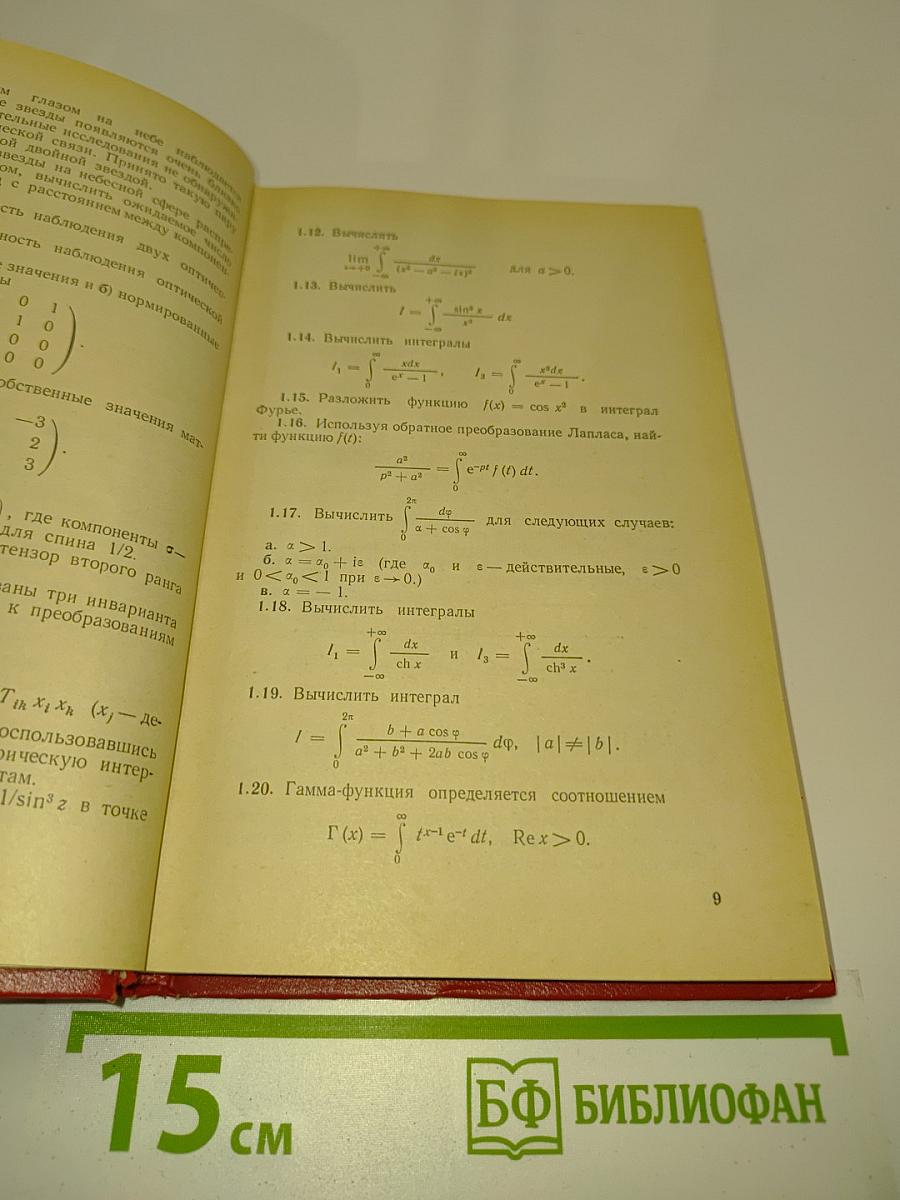 м глазом на небе наблюдается
е звезды появляются очень близко
тельные исследования не обнаружи-
ческой связи. Принято такую пару
ой двойной звездой.
звезды на небесной сфере распре-
ом, вычислить ожидаемое число
с расстоянием между компонен-
сть наблюдения двух оптичес-
ность наблюдения оптической
е значения и б) нормированные
ы
0 1
1 0
0 0
0 0
обственные значения мат-
−3
2
3
), где компоненты σ—
для спина 1/2.
тензор второго ранга
ваны три инварианта
к преобразованиям
T_{ik} x_i x_k (x_j — де-
оспользовавшись
рическую интер-
там.
1/sin³ z в точке
1.12. Вычислить
lim_{ε→+0} ∫_{−∞}^{+∞} dx / (x² − a² − iε)² для a > 0.
1.13. Вычислить
I = ∫_{−∞}^{+∞} sin³ x / x³ dx
1.14. Вычислить интегралы
I₁ = ∫_0^∞ xdx / (e^x − 1), I₃ = ∫_0^∞ x³dx / (e^x − 1).
1.15. Разложить функцию f(x) = cos x² в интеграл
Фурье.
1.16. Используя обратное преобразование Лапласа, най-
ти функцию f(t):
a² / (p² + a²) = ∫_0^∞ e^{−pt} f (t) dt.
1.17. Вычислить ∫_0^{2π} dφ / (α + cos φ) для следующих случаев:
а. α > 1.
б. α = α₀ + iε (где α₀ и ε — действительные, ε > 0
и 0 < α₀ < 1 при ε → 0.)
в. α = − 1.
1.18. Вычислить интегралы
I₁ = ∫_{−∞}^{+∞} dx / ch x и I₃ = ∫_{−∞}^{+∞} dx / ch³ x.
1.19. Вычислить интеграл
I = ∫_0^{2π} (b + a cos φ) / (a² + b² + 2ab cos φ) dφ, |a| ≠ |b|.
1.20. Гамма-функция определяется соотношением
Γ (x) = ∫_0^∞ t^{x−1} e^{−t} dt, Re x > 0.
9
15 см
БФ БИБЛИОФАН